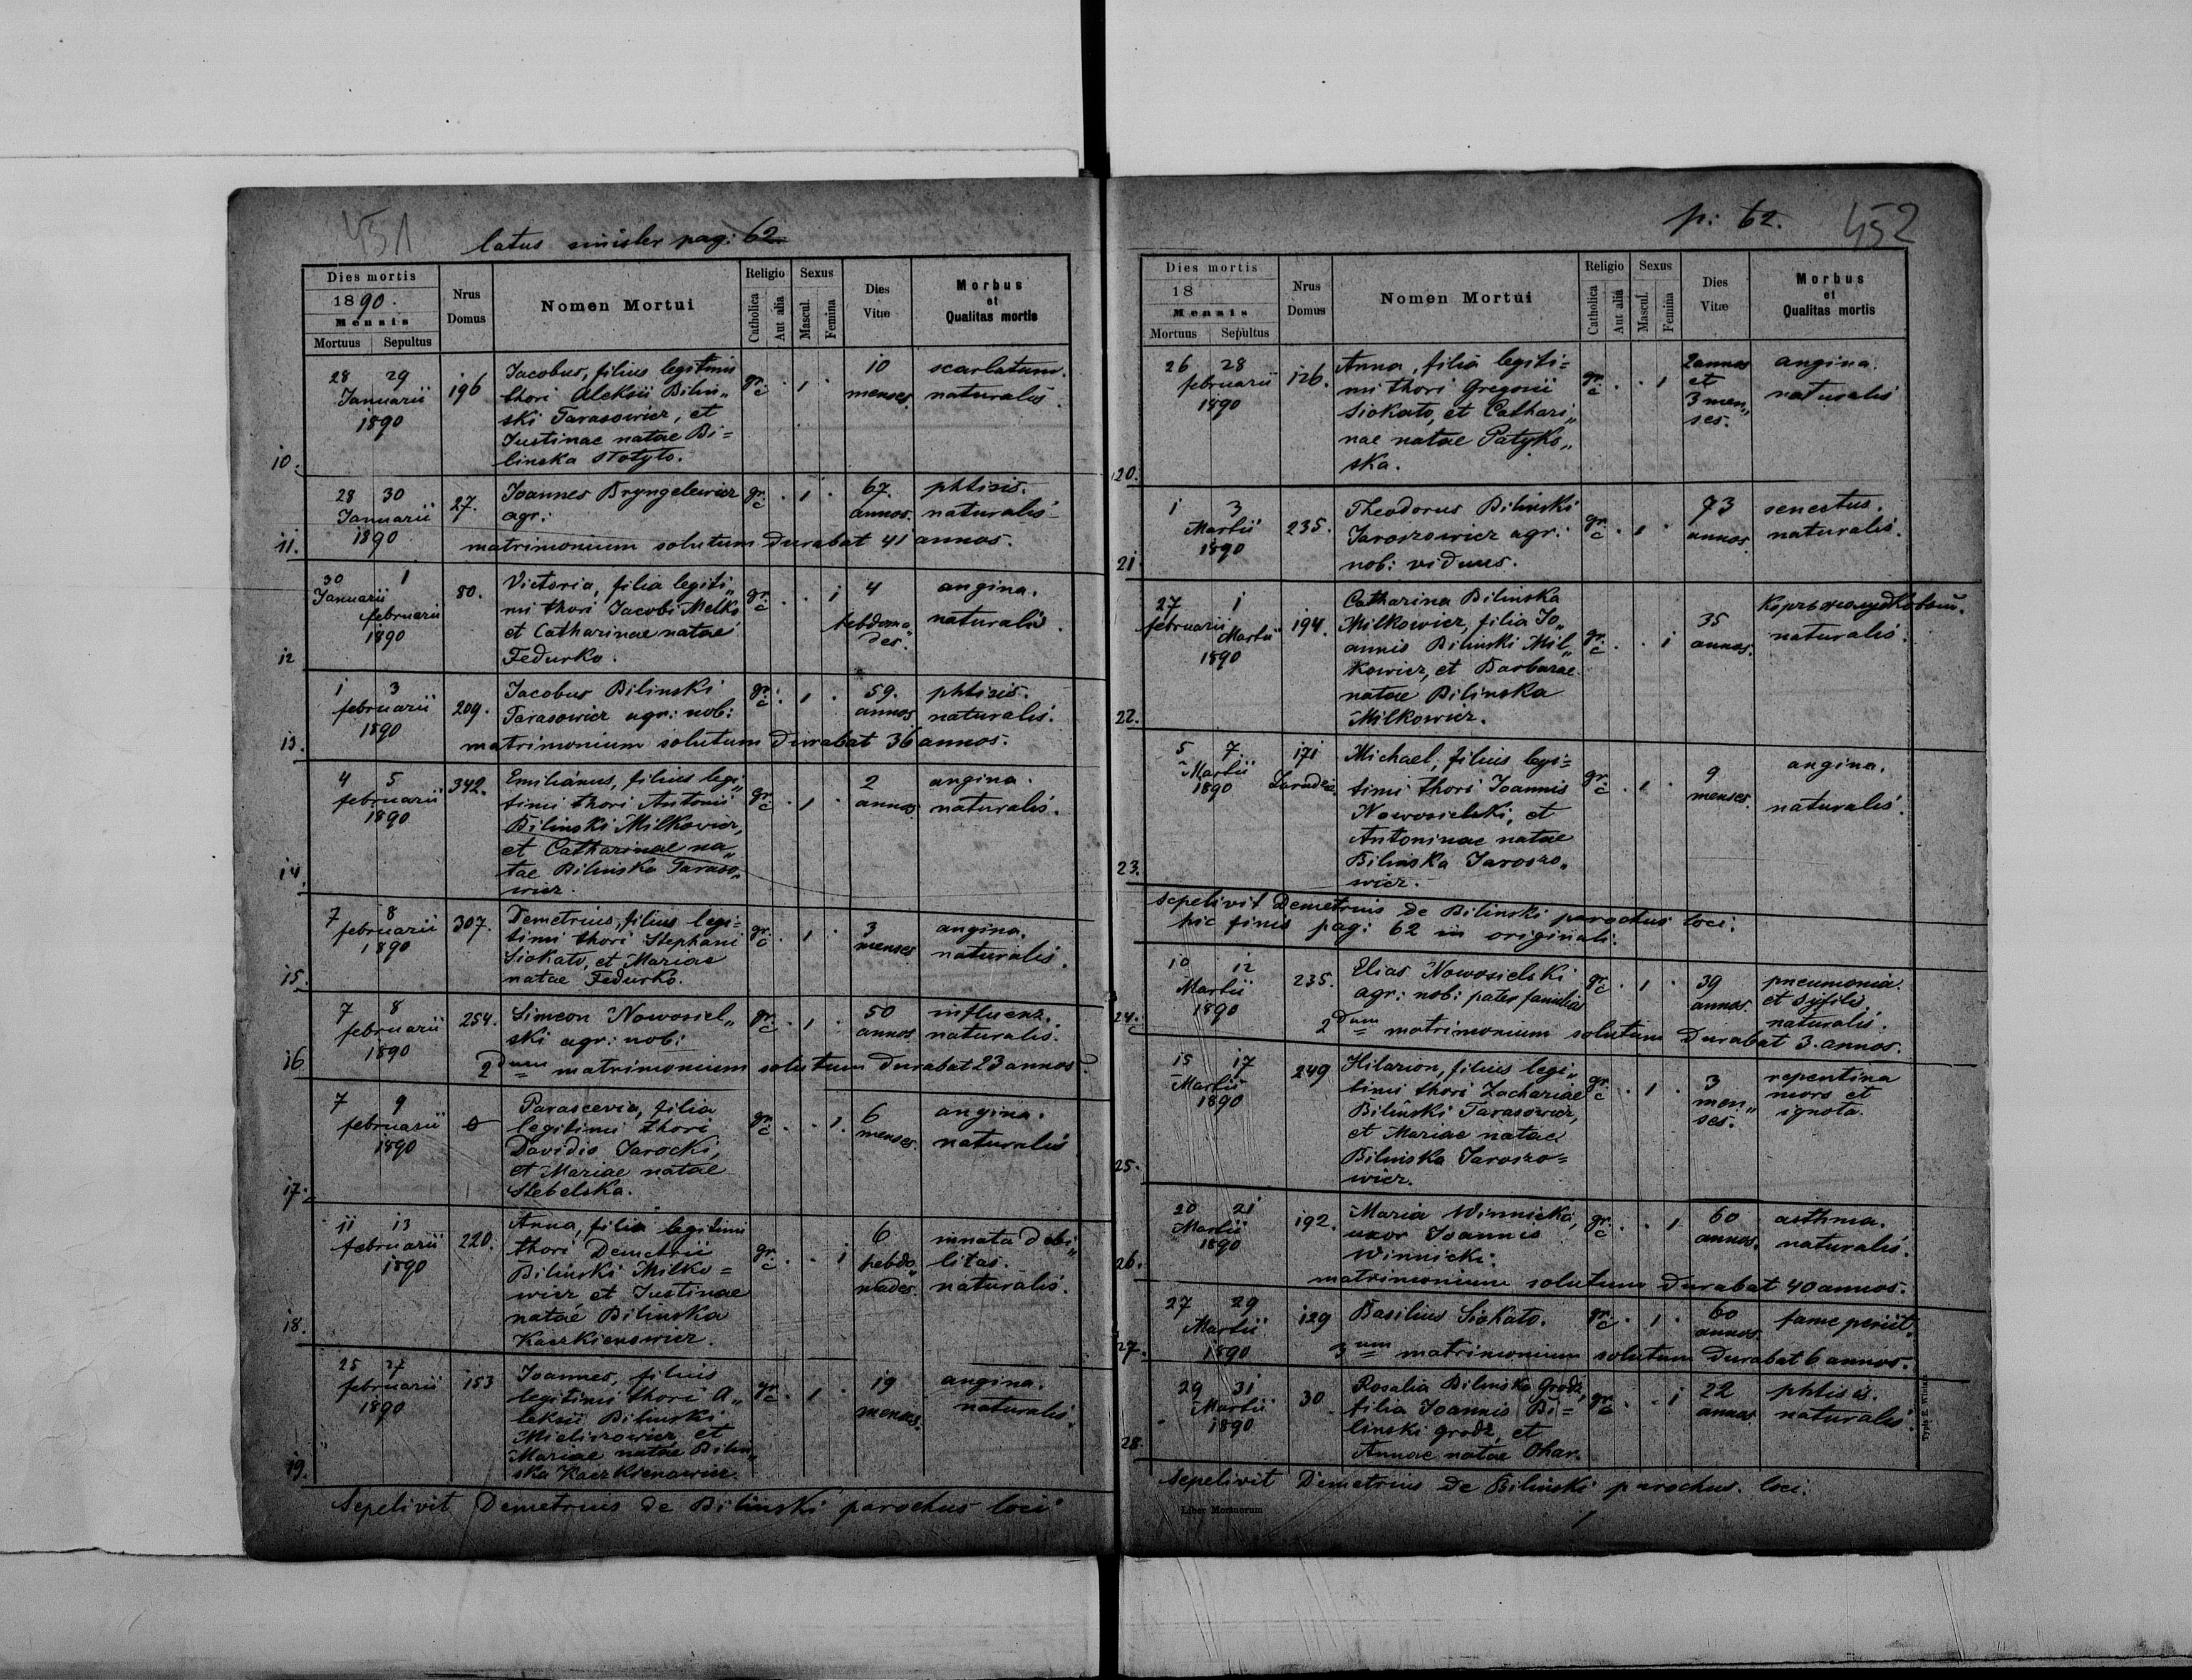 451
latus sinister pag: 62
Dies mortis
1890.
Mensis
Mortuus Sepultus
Nrus
Domus
Nomen Mortui
Religio
Catholica
Aut alia
Sexus
Mascul.
Femina
Dies
Vitæ
Morbus
et
Qualitas mortis
10.
28 29
Januarii
1890
196
Jacobus, filius legitimi
thori Aleksii Bilin„
ski Tarasowicz, et
Justinae natae Bi=
linska
gr.
c
1
10
menses
scarlatum.
naturalis
11.
28 30
Januarii
1890
27.
Joannes Bryngelewicz
agr:
gr.
c
1
67.
annos.
phtisis.
naturalis
matrimonium solutum durabat 41 annos.
12
30 1
Januarii
februarii
1890
80.
Victoria, filia legiti„
mi thori Jacobi Melko
et Catharinae natae
Fedurko.
gr.
c
1
4
hebdoma„
des.
angina.
naturalis.
13.
1 3
februarii
1890
209.
Jacobus Bilinski
Tarasowicz agr: nob:
gr.
c
1
59.
annos
phtisis.
naturalis.
matrimonium solutum durabat 36 annos.
14.
4 5
februarii
1890
342.
Emilianus, filius legi„
timi thori Antonii
Bilinski Milkowicz,
et Catharinae na„
tae Bilinska Taraso„
wicz.
gr.
c
1
2
annos
angina.
naturalis.
15.
7 8
februarii
1890
307.
Demetrius, filius legi=
timi thori Stephani
Siokato, et Mariae
natae Fedurko.
gr.
c
1
3
menses
angina.
naturalis.
16
7 8
februarii
1890
254.
Simeon Nowosiel„
ski agr: nob:
gr.
c
1
50
annos
influenz.
naturalis.
2dum matrimonium solutum durabat 23 annos.
17.
7 9
februarii
1890
0
Parascevia, filia
legitimi thori
Davidis Jarocki,
et Mariae natae
Stebelska.
gr.
c
1.
6
menses.
angina.
naturalis
18.
11 13
februarii
1890
220.
Anna, filia legitimi
thori Demetrii
Bilinski Milko=
wicz et Justinae
natae Bilinska
Kaczkienowicz.
gr.
c
1
6
hebdo„
mades.
innata debi„
litas.
naturalis.
19.
25 27
februarii
1890
153
Joannes, filius
legitimi thori A„
leksii Bilinski
Mieliszowicz, et
Mariae natae Bilin„
ska Kaczkienowicz.
gr.
c
1
19
menses.
angina.
naturalis.
Sepelivit Demetrius de Bilinski parochus loci
p: 62.
452
Dies mortis
18
Mensis
Mortuus Sepultus
Nrus
Domus
Nomen Mortui
Religio
Catholica
Aut alia
Sexus
Mascul.
Femina
Dies
Vitæ
Morbus
et
Qualitas mortis
20.
26 28
februarii
1890
126.
Anna, filia legiti=
mi thori Gregorii
Siokato, et Cathari„
nae natae Patyko„
ska.
gr.
c
1
2 annos
et
3 men„
ses.
angina.
naturalis
21
1 3
Martii
1890
235.
Theodorus Bilinski
Jaroszowicz agr:
nob: viduus.
gr.
c
1
73
annos.
senectus.
naturalis.
22.
27 1
februarii Martii
1890
194.
Catharina Bilinska
Milkowicz, filia Jo„
annis Bilinski Mil„
kowicz, et Barbarae
natae Bilinska
Milkowicz.
gr.
c
1
35
annos.
naturalis.
23.
5 7
Martii
1890
171
Michael, filius legi=
timi thori Joannis
Nowosielski, et
Antoninae natae
Bilinska Jaroszo„
wicz.
gr.
c
1
9
menses.
angina.
naturalis.
Sepelivit Demetrius de Bilinski parochus loci.
hic finis pag: 62 in originali.
24.
10 12
Martii
1890
235.
Elias Nowosielski
agr: nob: pater familias
gr.
c
1
39
annos.
pneumonia
et syfilis,
naturalis.
2dum matrimonium solutum durabat 3. annos.
25.
15 17
Martii
1890
249
Hilarion, filius legi„
timi thori Zachariae
Bilinski Tarasowicz,
et Mariae natae
Bilinska Jaroszo=
wicz.
gr.
c
1
3
men„
ses.
repentina
mors et
ignota.
26.
20 21
Martii
1890
192.
Maria Winnicka,
uxor Joannis
Winnicki.
gr.
c
1
60
annos.
asthma.
naturalis.
matrimonium solutum durabat 40 annos.
27.
27 29
Martii
1890
129
Basilius Siokato.
gr.
c
1
60
annos.
fame periit.
3um matrimonium solutum durabat 6 annos.
28.
29 31
Martii
1890
30
Rosalia Bilinska Grodz,
filia Joannis Bi=
linski grodz, et
Annae natae Ohar.
gr.
c
1
22
annos
phtisis.
naturalis.
Sepelivit Demetrius de Bilinski parochus loci.
Liber Mortuorum